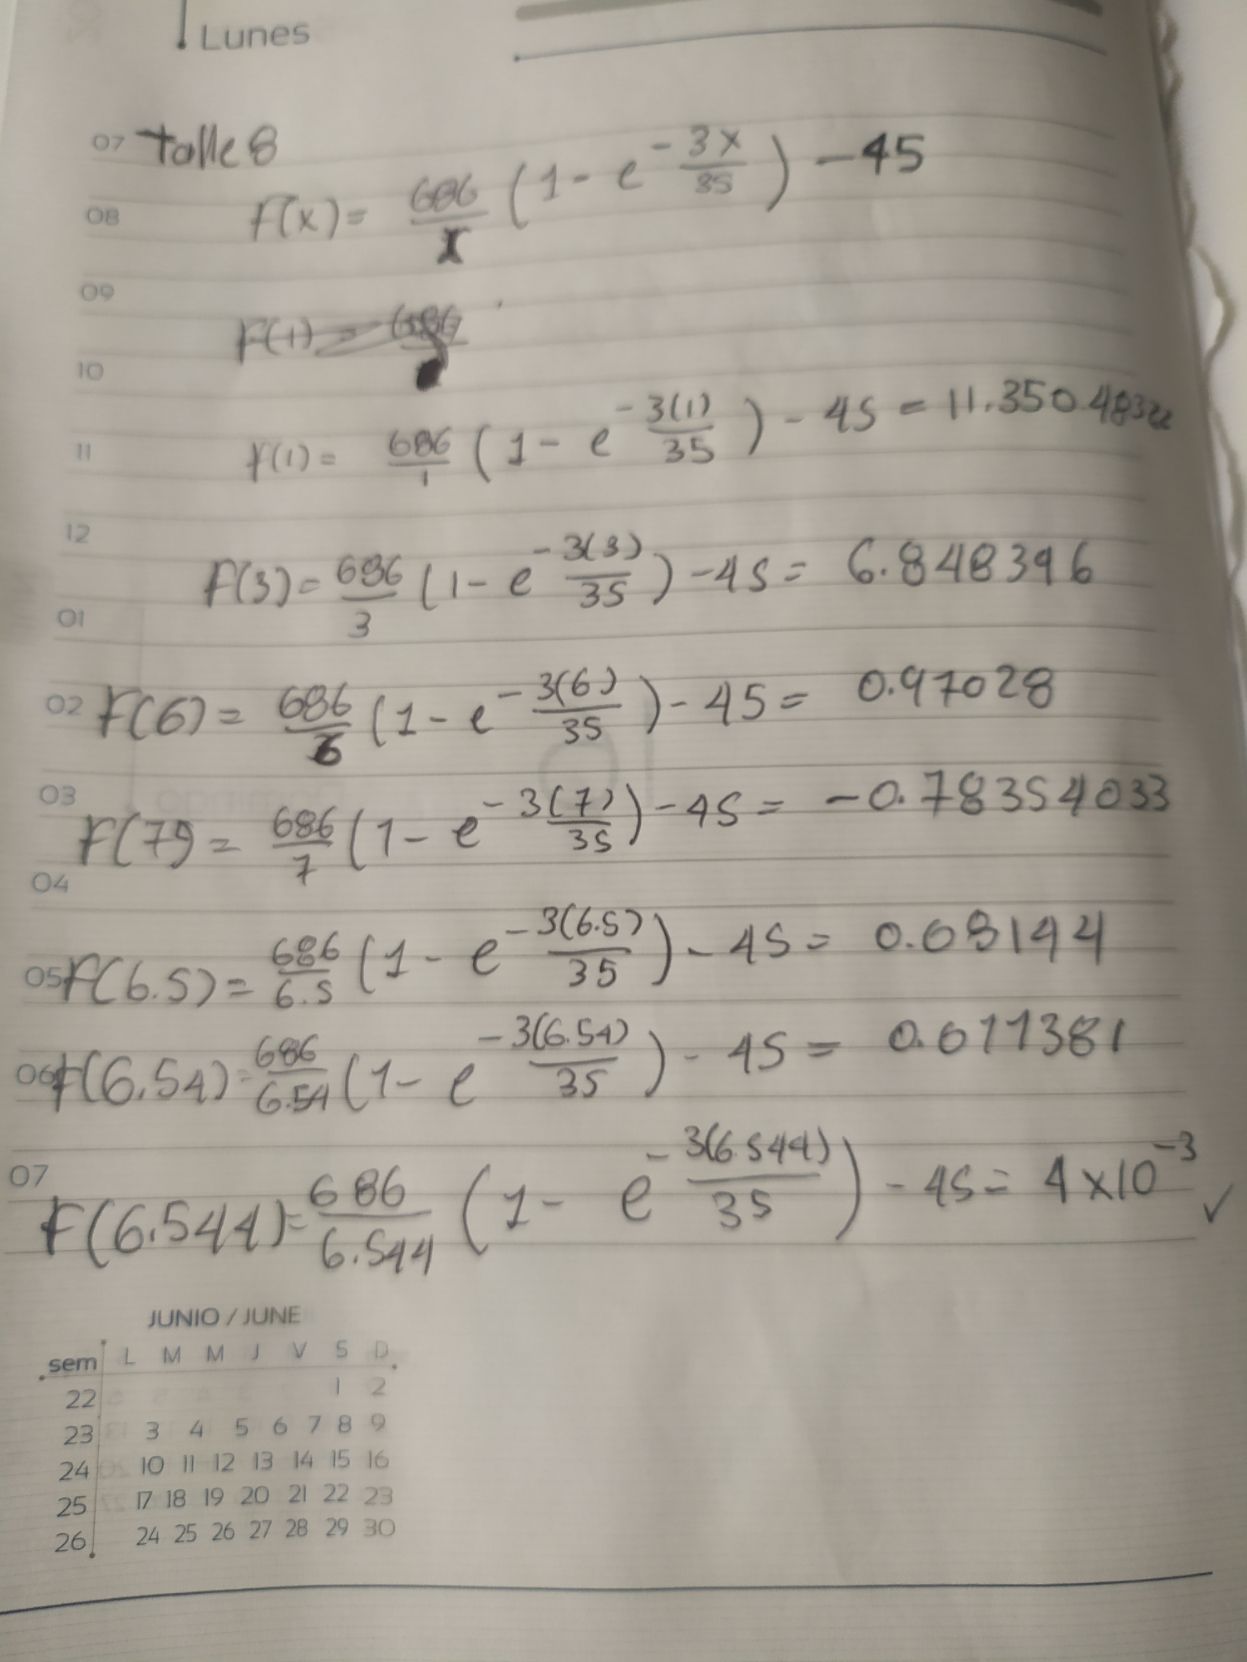 Lunes
07 talle 8
08 F(x) = 686/x (1 - e^(-3x/35)) - 45
09
F(1) = 686
10
11 F(1) = 686/1 (1 - e^(-3(1)/35)) - 45 = 11.350.4832
12
F(3) = 686/3 (1 - e^(-3(3)/35)) - 45 = 6.848396
01
02 F(6) = 686/6 (1 - e^(-3(6)/35)) - 45 = 0.97028
03
F(7) = 686/7 (1 - e^(-3(7)/35)) - 45 = -0.78354033
04
05 F(6.5) = 686/6.5 (1 - e^(-3(6.5)/35)) - 45 = 0.08144
06 F(6.54) = 686/6.54 (1 - e^(-3(6.54)/35)) - 45 = 0.011381
07
F(6.544) = 686/6.544 (1 - e^(-3(6.544)/35)) - 45 = 4x10^-3 ✓
JUNIO / JUNE
sem L M M J V S D
22 1 2
23 3 4 5 6 7 8 9
24 10 11 12 13 14 15 16
25 17 18 19 20 21 22 23
26 24 25 26 27 28 29 30